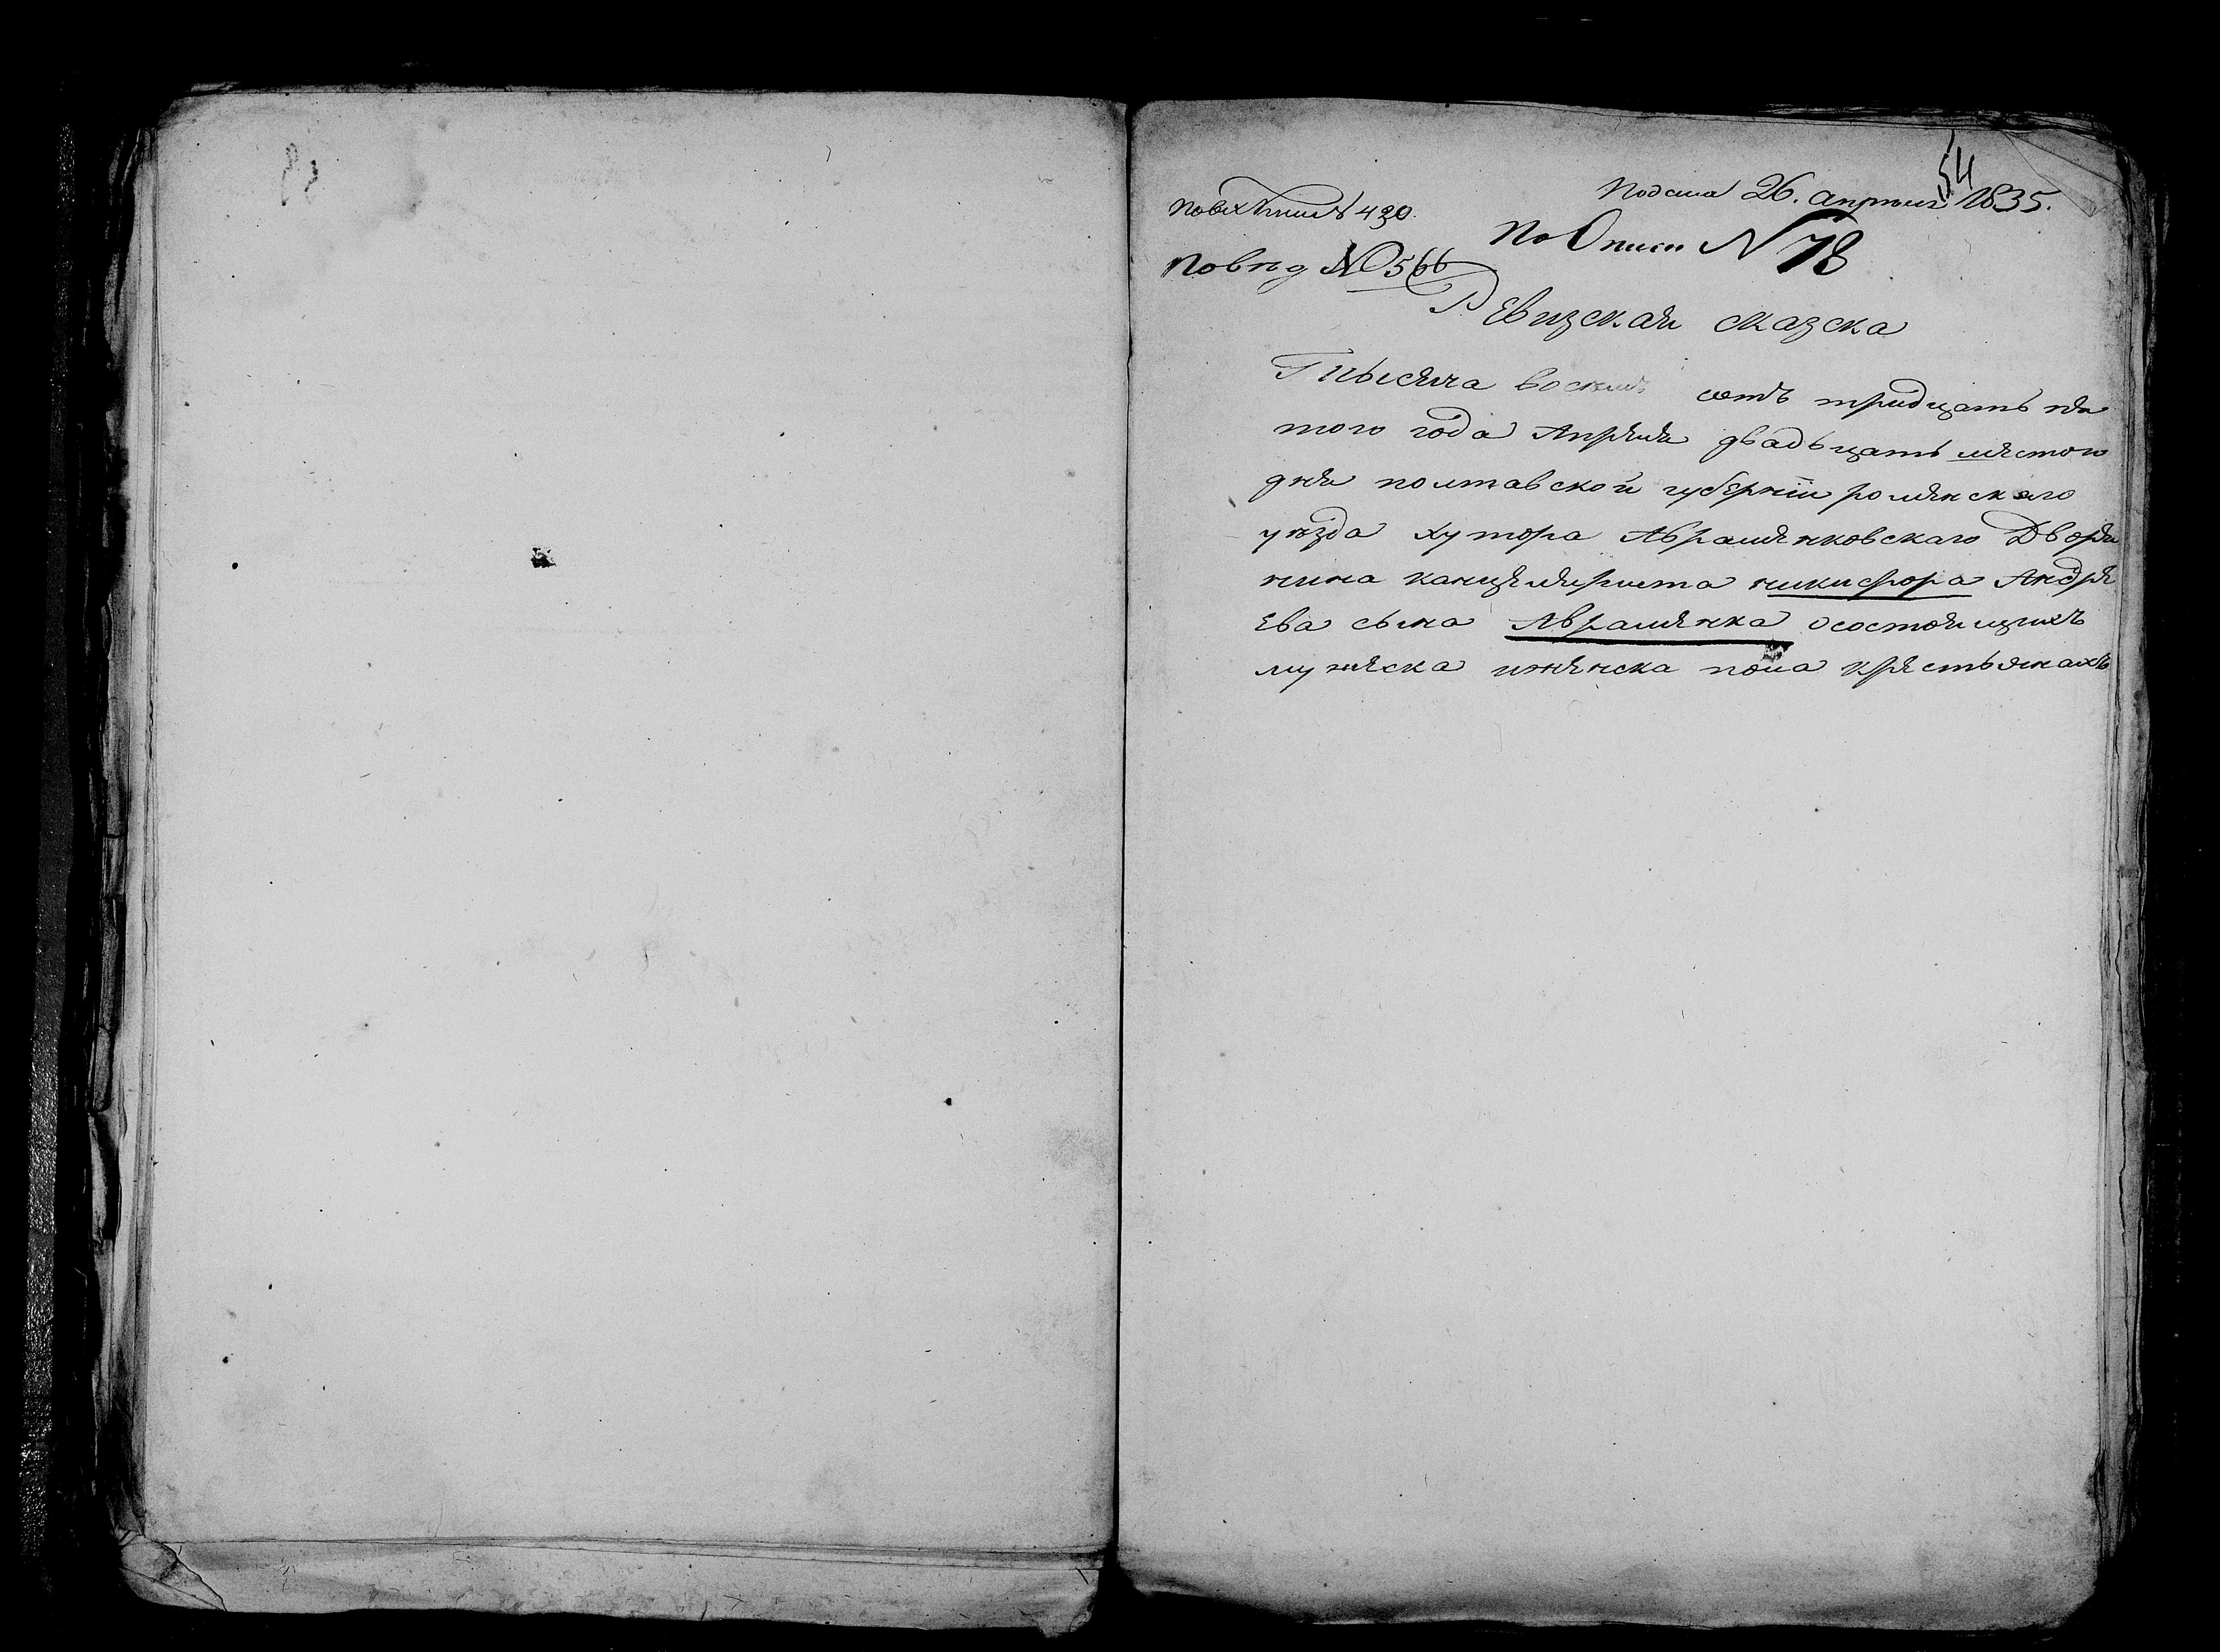 54
Подана 26. апреля 1835.
430.
По Описи N 78
По вѣд № 566
Ревизская сказска
Тысяча восемъ сотъ тридцать пя
того года Апреля двадьцать шестого
дня полтавской губернии роменского
уѣзда хутора Авраменковскаго Дворя
нина канцеляриста никифора Андре
ева сына Авраменка осостоящихъ
мужеска иженска пола крестьянахъ